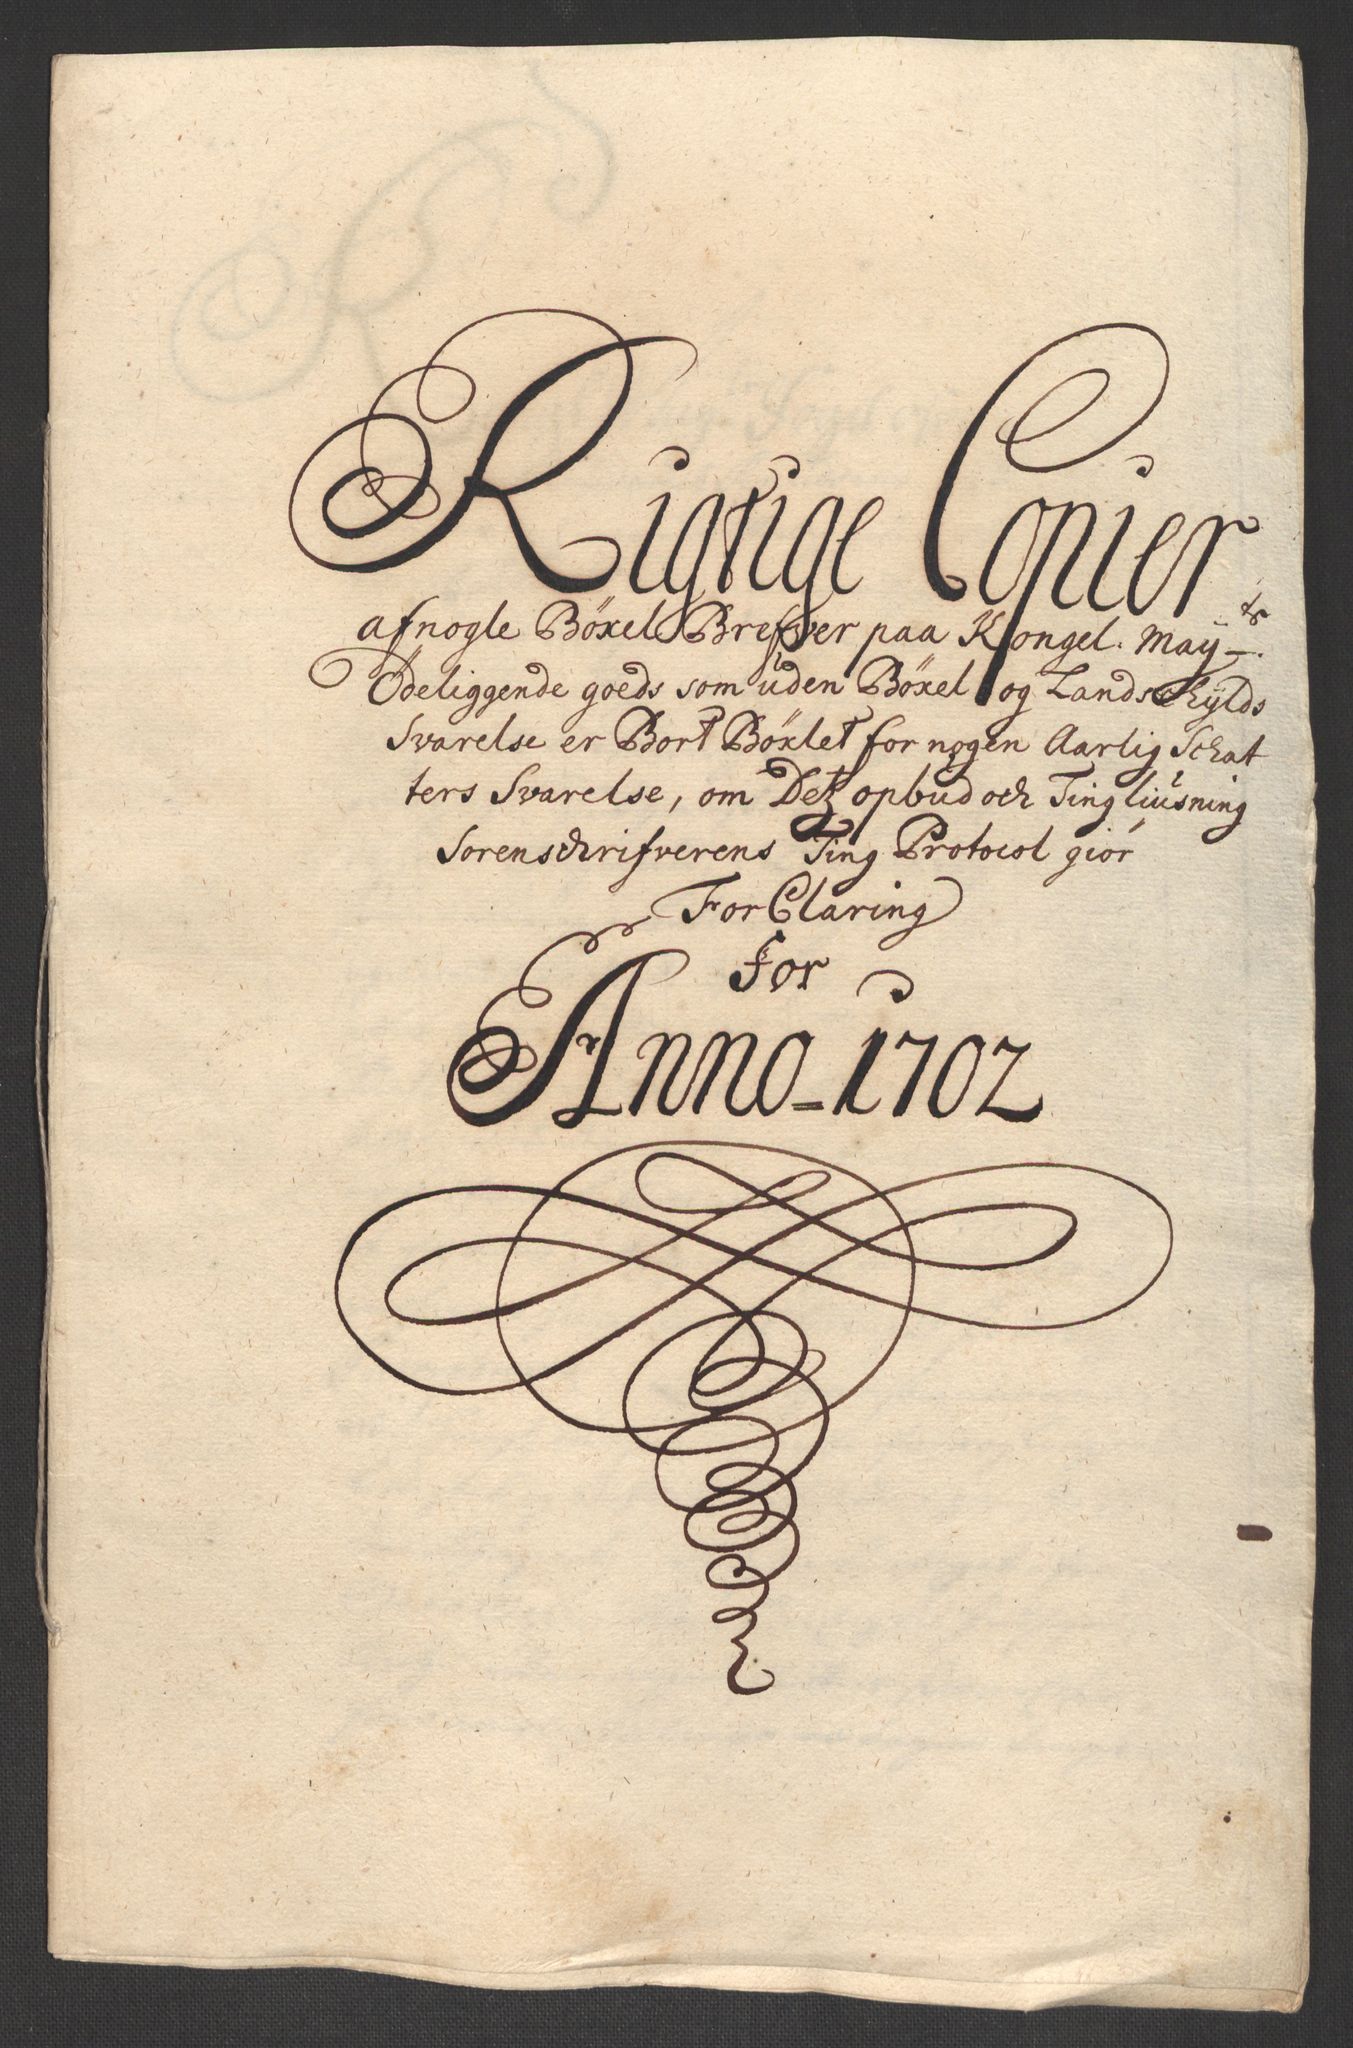 Rigtige Copier
af nogle Böxel Brefver paa Kongel. Maÿts.
Ödeliggende goeds som uden Böxel og Landschÿlds
Svarelse er Bort Böxlet for nogen Aarlig Schat
ters Svarelse, om Detz opbud och Ting liusning
Sorenschrifverens Ting Protocol giör
ForClaring
for
Anno-1702